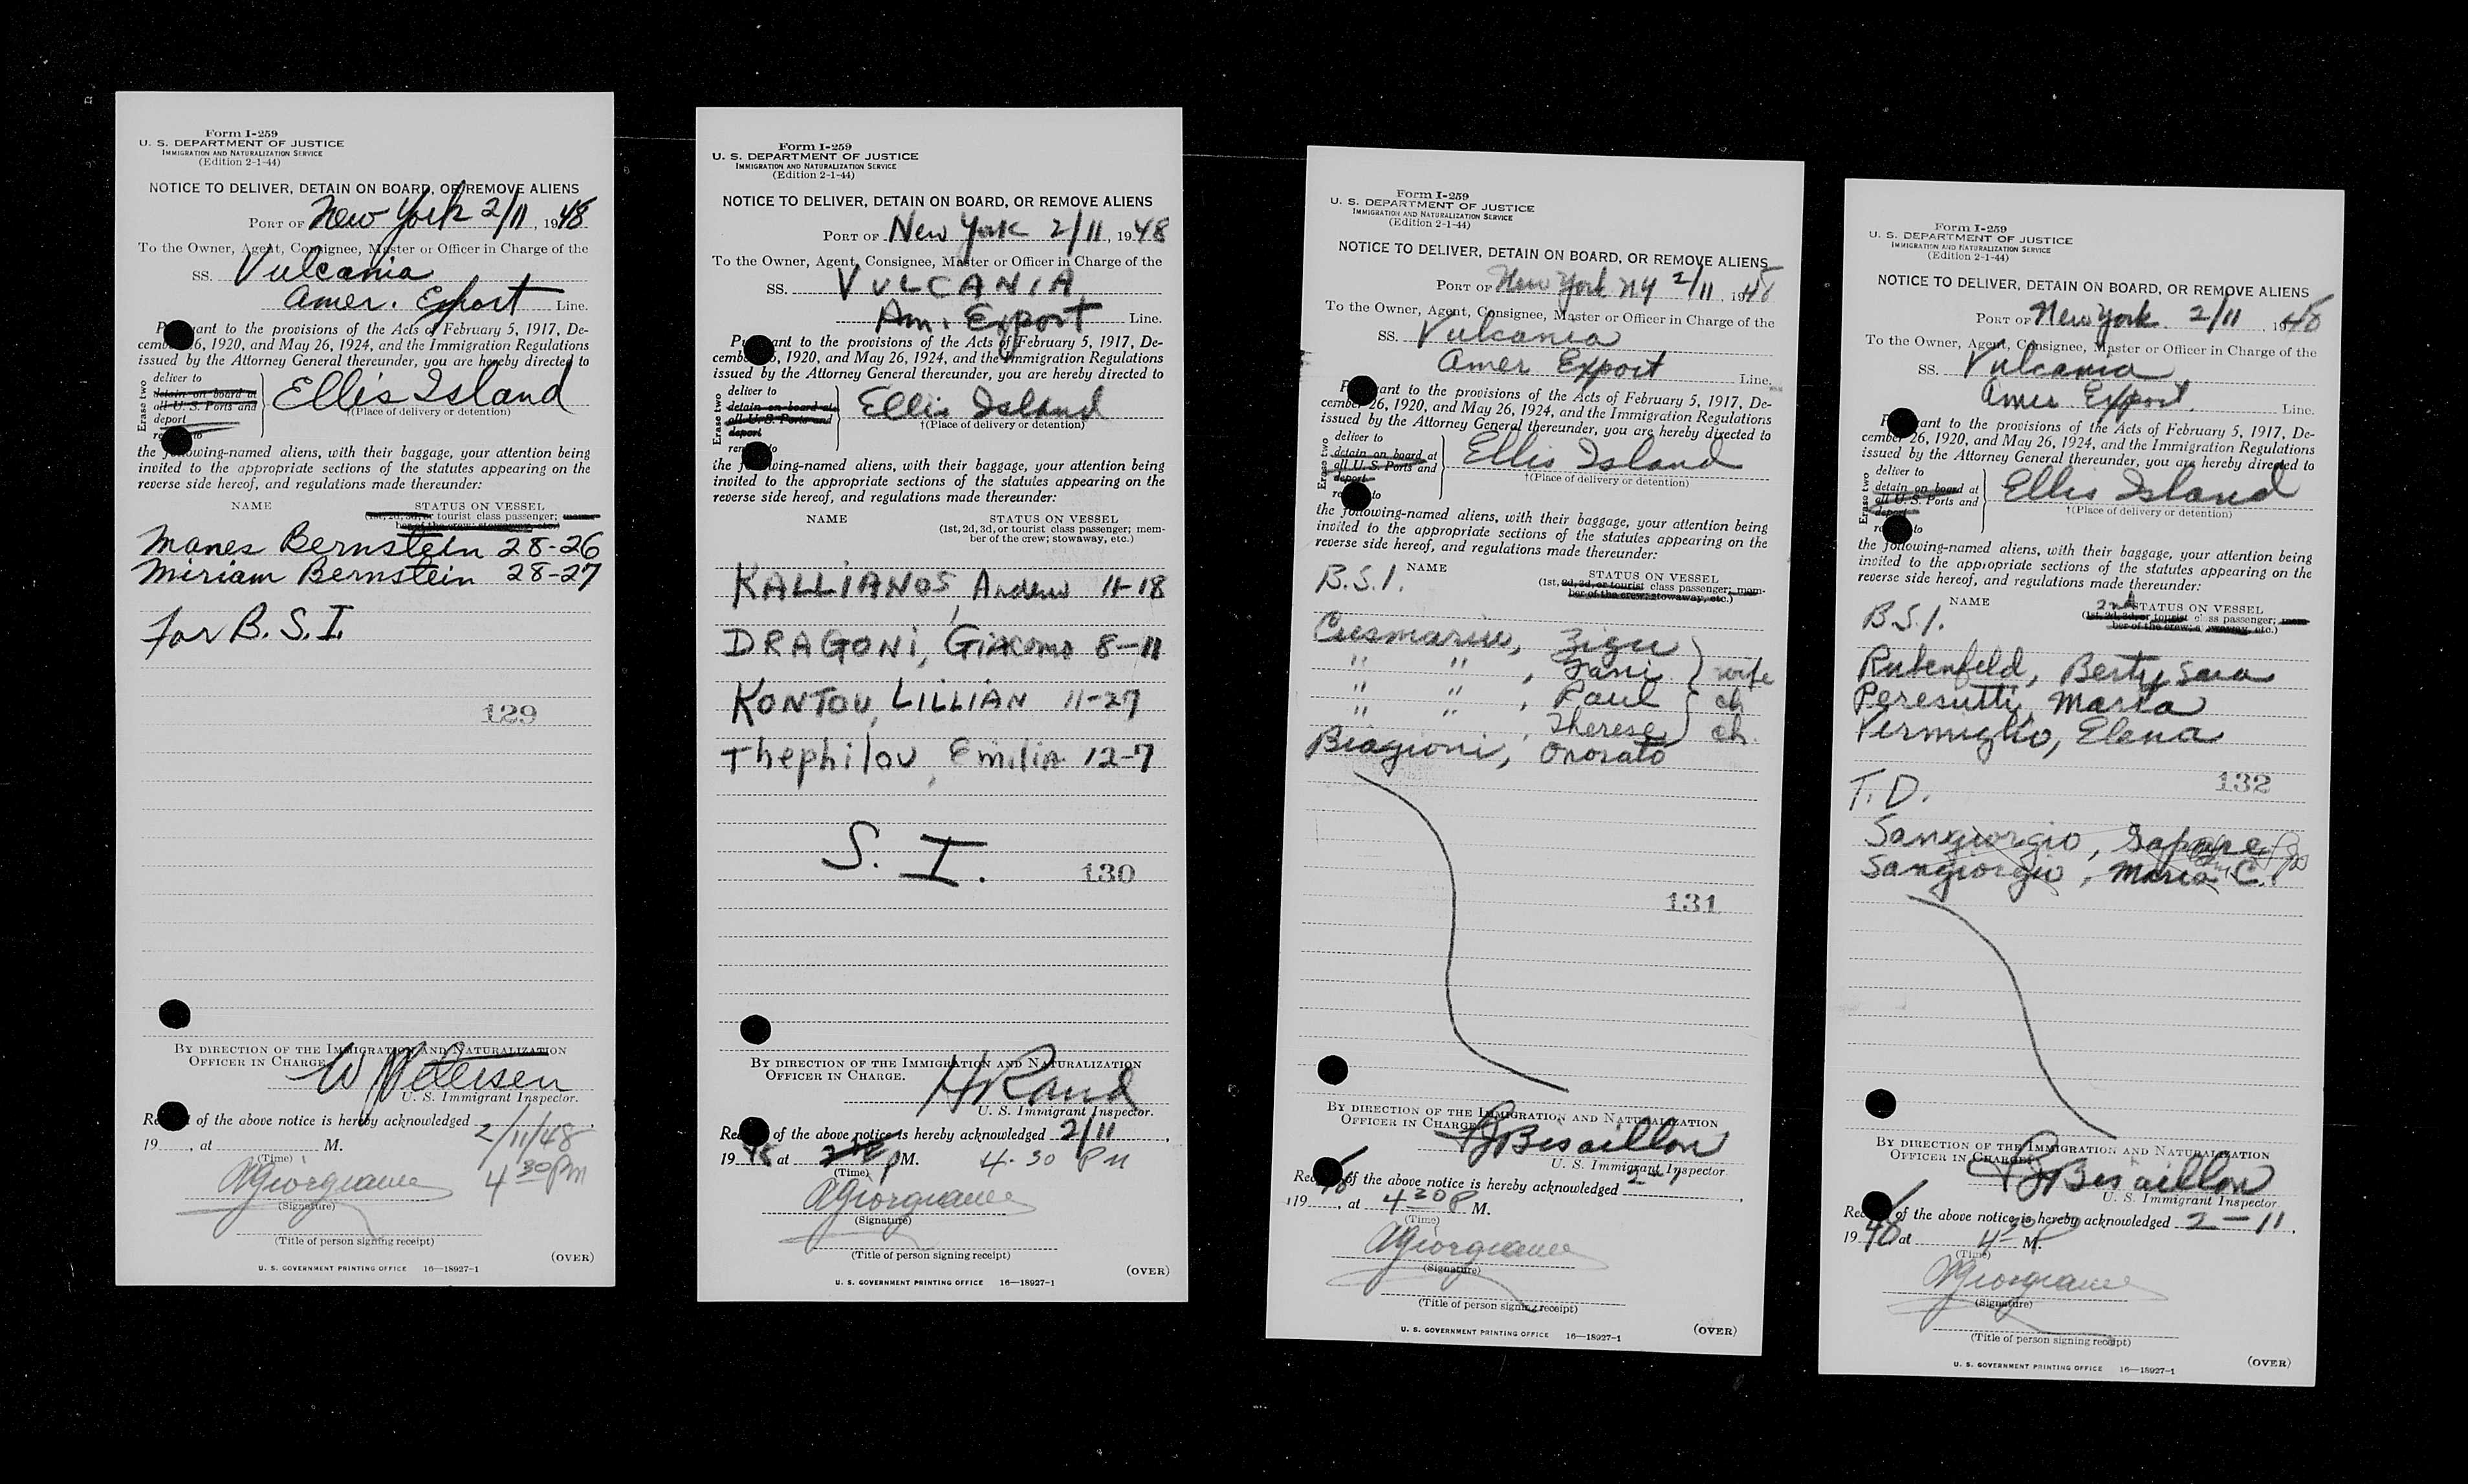 Form I-259
U. S. DEPARTMENT OF JUSTICE
IMMIGRATION AND NATURALIZATION SERVICE
(Edition 2-1-44)
NOTICE TO DELIVER, DETAIN ON BOARD, OR REMOVE ALIENS
PORT OF New York 2/11, 1948
To the Owner, Agent, Consignee, Master or Officer in Charge of the
SS. Vulcania
Amer. Export Line.
Pursuant to the provisions of the Acts of February 5, 1917, De-
cember 26, 1920, and May 26, 1924, and the Immigration Regulations
issued by the Attorney General thereunder, you are hereby directed to
Erase two
deliver to
detain on board at
all U. S. Ports and
deport
Ellis Island
†(Place of delivery or detention)
the following-named aliens, with their baggage, your attention being
invited to the appropriate sections of the statutes appearing on the
reverse side hereof, and regulations made thereunder:
NAME STATUS ON VESSEL
(1st, 2d, 3d, or tourist class passenger; mem-
ber of the crew; stowaway, etc.)
Manes Bernstein 28-26
Miriam Bernstein 28-27
for B. S. I.
129
BY DIRECTION OF THE IMMIGRATION AND NATURALIZATION
OFFICER IN CHARGE.
W Petersen
U. S. Immigrant Inspector.
Receipt of the above notice is hereby acknowledged 2/11/48,
19____, at ____ M. 4 30 PM
(Time)
(Signature)
(Title of person signing receipt)
(OVER)
U. S. GOVERNMENT PRINTING OFFICE 16—18927-1
Form I-259
U. S. DEPARTMENT OF JUSTICE
IMMIGRATION AND NATURALIZATION SERVICE
(Edition 2-1-44)
NOTICE TO DELIVER, DETAIN ON BOARD, OR REMOVE ALIENS
PORT OF New York 2/11, 1948
To the Owner, Agent, Consignee, Master or Officer in Charge of the
SS. VULCANIA
Am. Export Line.
Pursuant to the provisions of the Acts of February 5, 1917, De-
cember 26, 1920, and May 26, 1924, and the Immigration Regulations
issued by the Attorney General thereunder, you are hereby directed to
Erase two
deliver to
detain on board at
all U. S. Ports and
deport
Ellis Island
†(Place of delivery or detention)
the following-named aliens, with their baggage, your attention being
invited to the appropriate sections of the statutes appearing on the
reverse side hereof, and regulations made thereunder:
NAME STATUS ON VESSEL
(1st, 2d, 3d, or tourist class passenger; mem-
ber of the crew; stowaway, etc.)
KALLIANOS, Andrew 11-18
DRAGONI, GIACOMO 8-11
KONTOU, LILLIAN 11-27
Thephilou, Emilia 12-7
S. I.
130
BY DIRECTION OF THE IMMIGRATION AND NATURALIZATION
OFFICER IN CHARGE.
H Rand
U. S. Immigrant Inspector.
Receipt of the above notice is hereby acknowledged 2/11,
1948 at PM. 4-30 PM
(Time)
(Signature)
(Title of person signing receipt)
(OVER)
U. S. GOVERNMENT PRINTING OFFICE 16—18927-1
Form I-259
U. S. DEPARTMENT OF JUSTICE
IMMIGRATION AND NATURALIZATION SERVICE
(Edition 2-1-44)
NOTICE TO DELIVER, DETAIN ON BOARD, OR REMOVE ALIENS
PORT OF New York NY 2/11, 1948
To the Owner, Agent, Consignee, Master or Officer in Charge of the
SS. Vulcania
Amer Export Line.
Pursuant to the provisions of the Acts of February 5, 1917, De-
cember 26, 1920, and May 26, 1924, and the Immigration Regulations
issued by the Attorney General thereunder, you are hereby directed to
Erase two
deliver to
detain on board at
all U. S. Ports and
deport
Ellis Island
†(Place of delivery or detention)
the following-named aliens, with their baggage, your attention being
invited to the appropriate sections of the statutes appearing on the
reverse side hereof, and regulations made thereunder:
B.S.I. NAME STATUS ON VESSEL
(1st, 2d, 3d, or tourist class passenger; mem-
ber of the crew; stowaway, etc.)
Zigu
" " , Fani wife
" " , Paul ch
" " , Therese ch.
Biagioni, Onorato
131
BY DIRECTION OF THE IMMIGRATION AND NATURALIZATION
OFFICER IN CHARGE.
Bisaillon
U. S. Immigrant Inspector
Receipt of the above notice is hereby acknowledged
19____, at 4 30 P M.
(Time)
(Signature)
(Title of person signing receipt)
(OVER)
U. S. GOVERNMENT PRINTING OFFICE 16—18927-1
Form I-259
U. S. DEPARTMENT OF JUSTICE
IMMIGRATION AND NATURALIZATION SERVICE
(Edition 2-1-44)
NOTICE TO DELIVER, DETAIN ON BOARD, OR REMOVE ALIENS
PORT OF New York 2/11, 1948
To the Owner, Agent, Consignee, Master or Officer in Charge of the
SS. Vulcania
Amer Export. Line.
Pursuant to the provisions of the Acts of February 5, 1917, De-
cember 26, 1920, and May 26, 1924, and the Immigration Regulations
issued by the Attorney General thereunder, you are hereby directed to
Erase two
deliver to
detain on board at
all U. S. Ports and
deport
Ellis Island
†(Place of delivery or detention)
the following-named aliens, with their baggage, your attention being
invited to the appropriate sections of the statutes appearing on the
reverse side hereof, and regulations made thereunder:
B.S.I. NAME 2nd STATUS ON VESSEL
(1st, 2d, 3d, or tourist class passenger; mem-
ber of the crew; stowaway, etc.)
Rubenfeld, Berty Sara
Peresutti, Maria
Vermiglio, Elena
132
T. D.
Sangiorgio,
Sangiorgio, Maria C.
BY DIRECTION OF THE IMMIGRATION AND NATURALIZATION
OFFICER IN CHARGE.
Bisaillon
U. S. Immigrant Inspector
Receipt of the above notice is hereby acknowledged 2-11,
19 at M.
(Time)
(Signature)
(Title of person signing receipt)
(OVER)
U. S. GOVERNMENT PRINTING OFFICE 16—18927-1